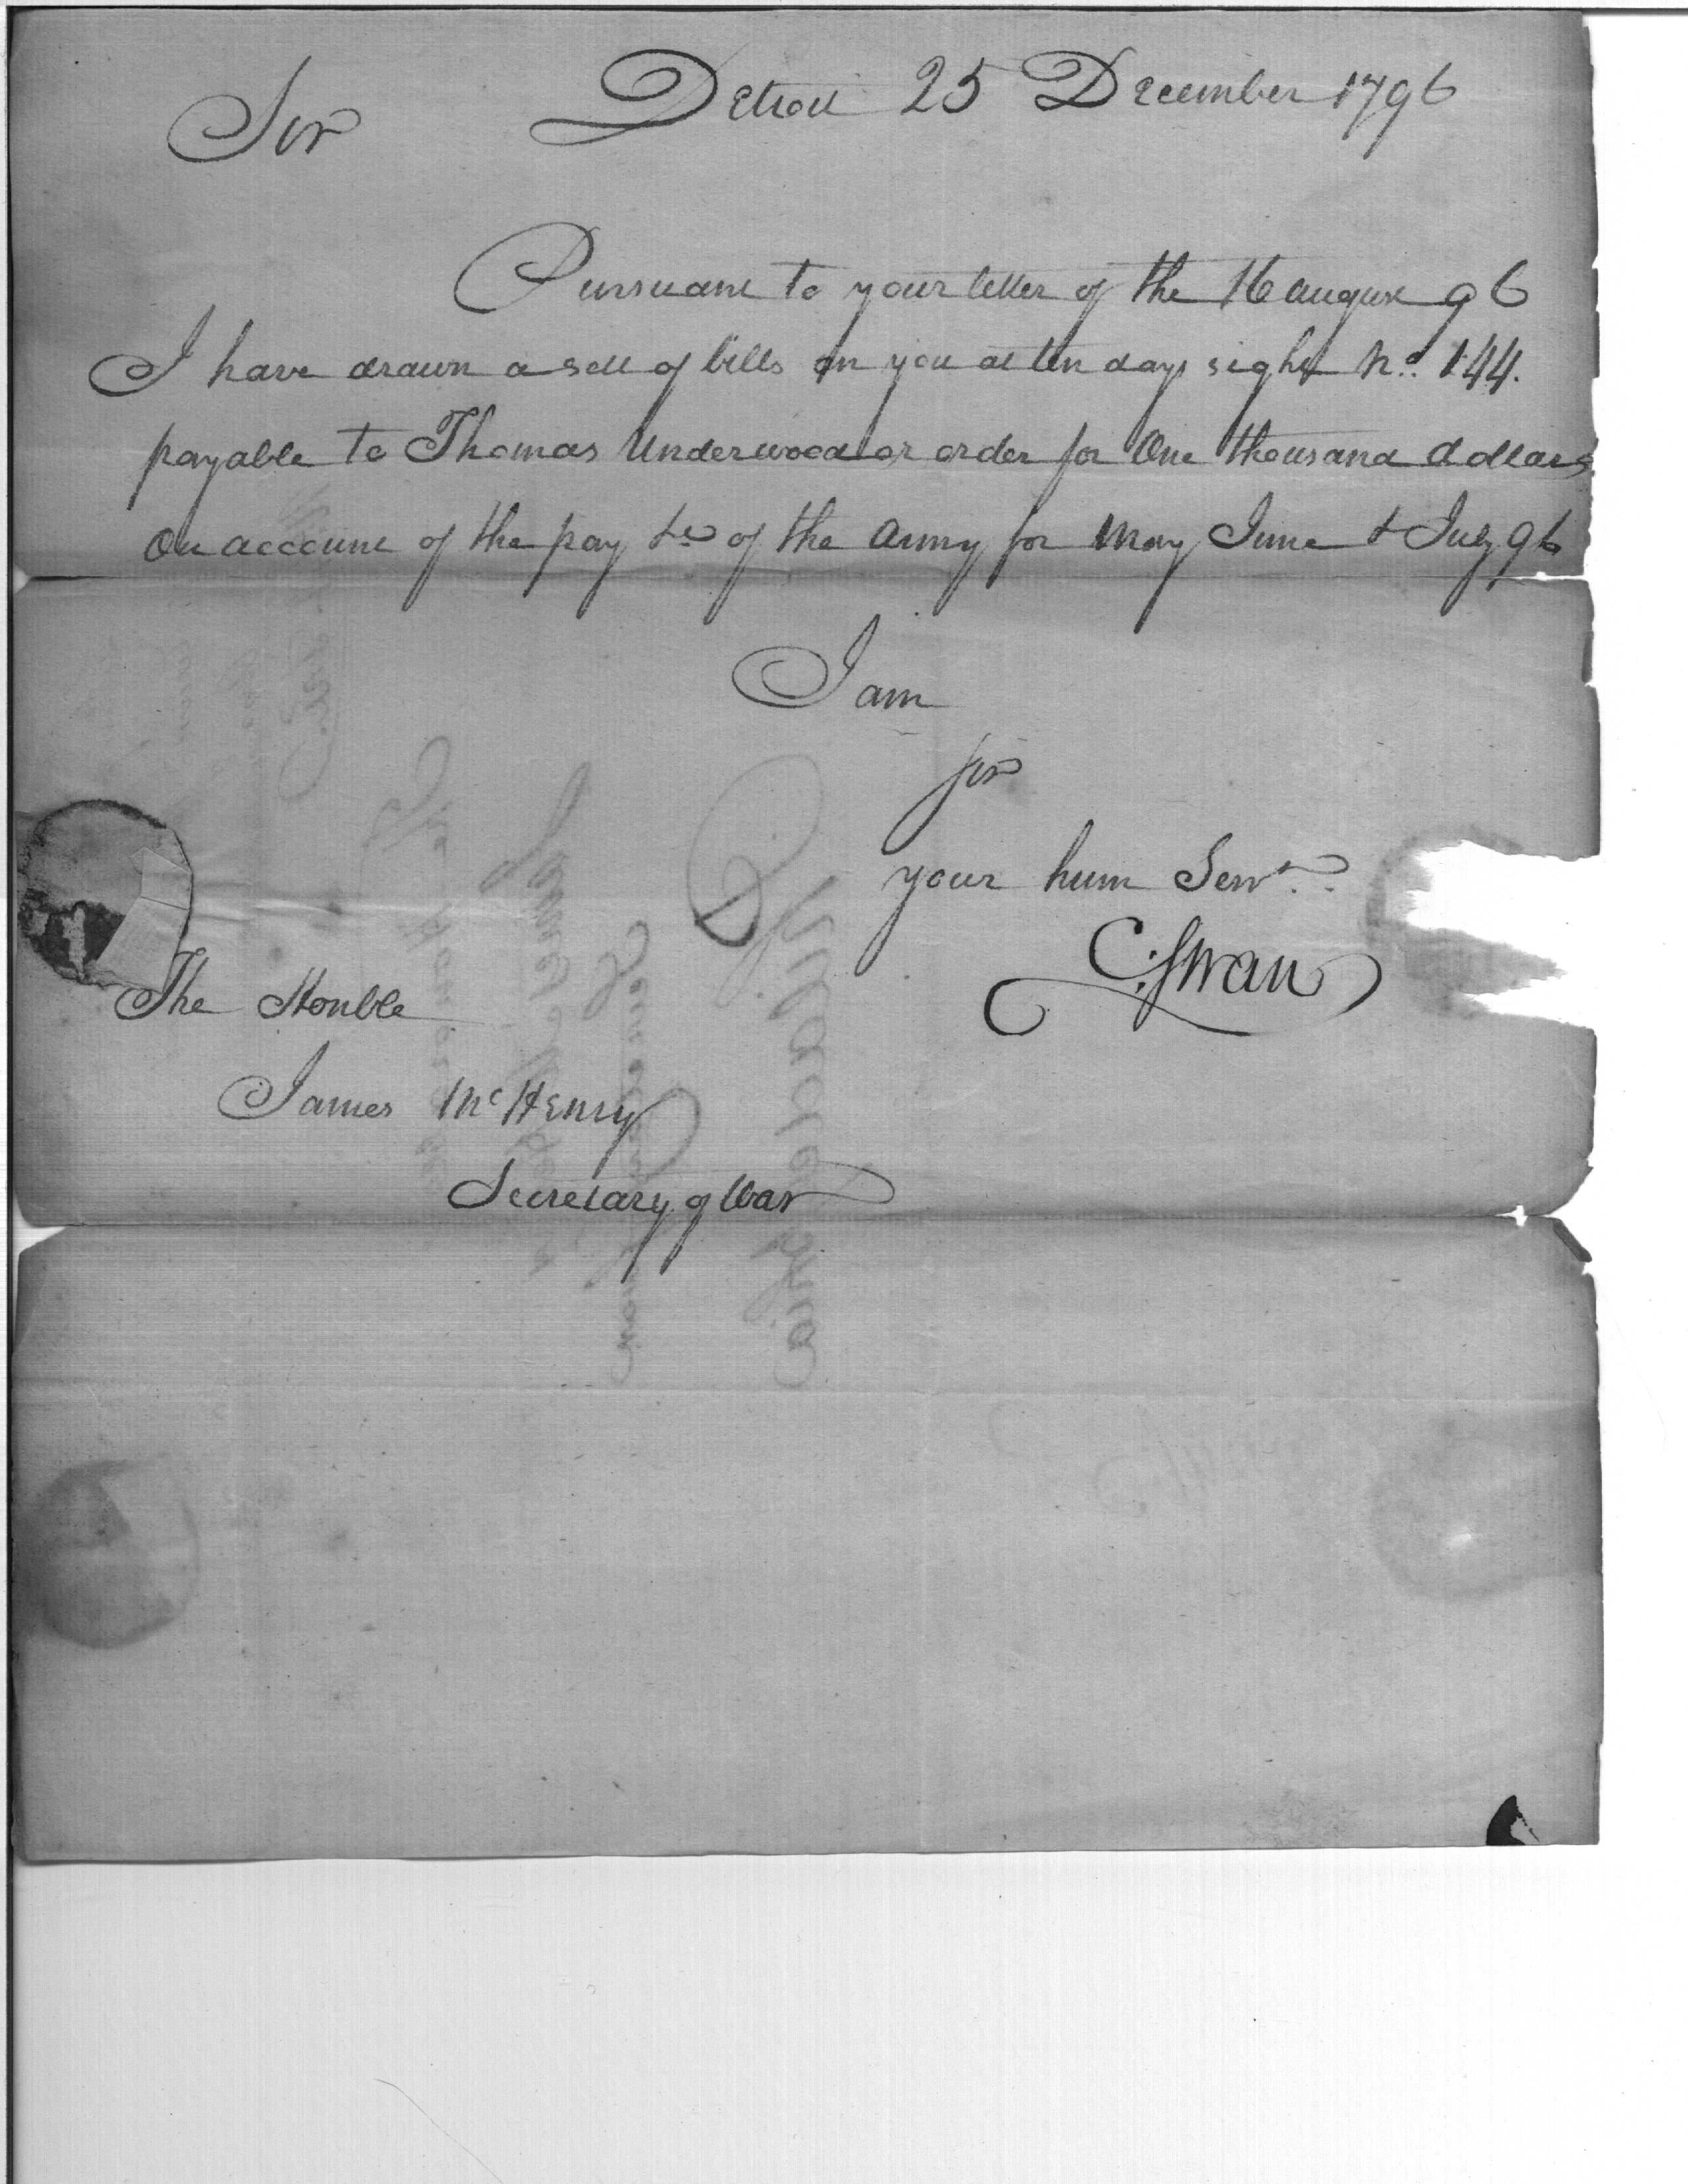 Detroit 25 December 1796
Sir
Pursuant to your letter of the 16 august 96
I have drawn a sett of bills on you at ten days sight No. 144.
payable to Thomas Underwood or order for One thousand dollars
On account of the pay &c of the Army for May June & July 96
I am
sir
your hum Servt.
C: Swan
The Honble
James McHenry
Secretary of War